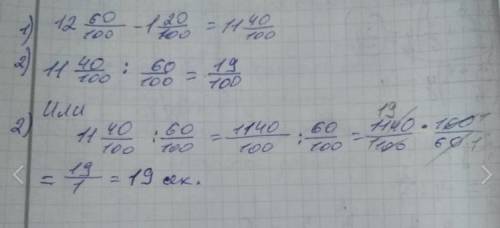 1) 12 60/100 - 1 20/100 = 11 40/100
2) 11 40/100 : 60/100 = 19/100
Или
2) 11 40/100 : 60/100 = 1140/100 : 60/100 = 19 1140/1100 · 100 1/60 1
= 19/1 = 19 ак.